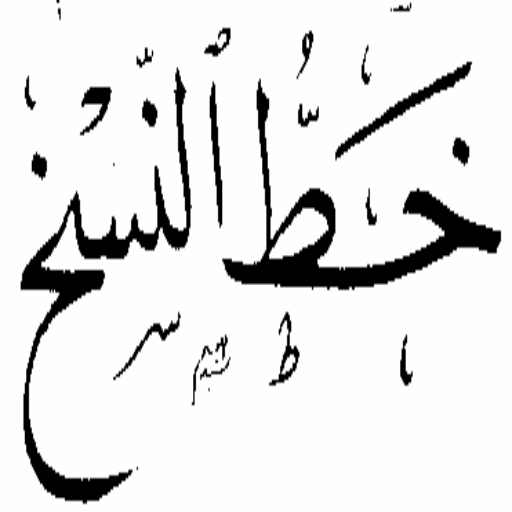 خَطُّ ٱلنَّسْخ